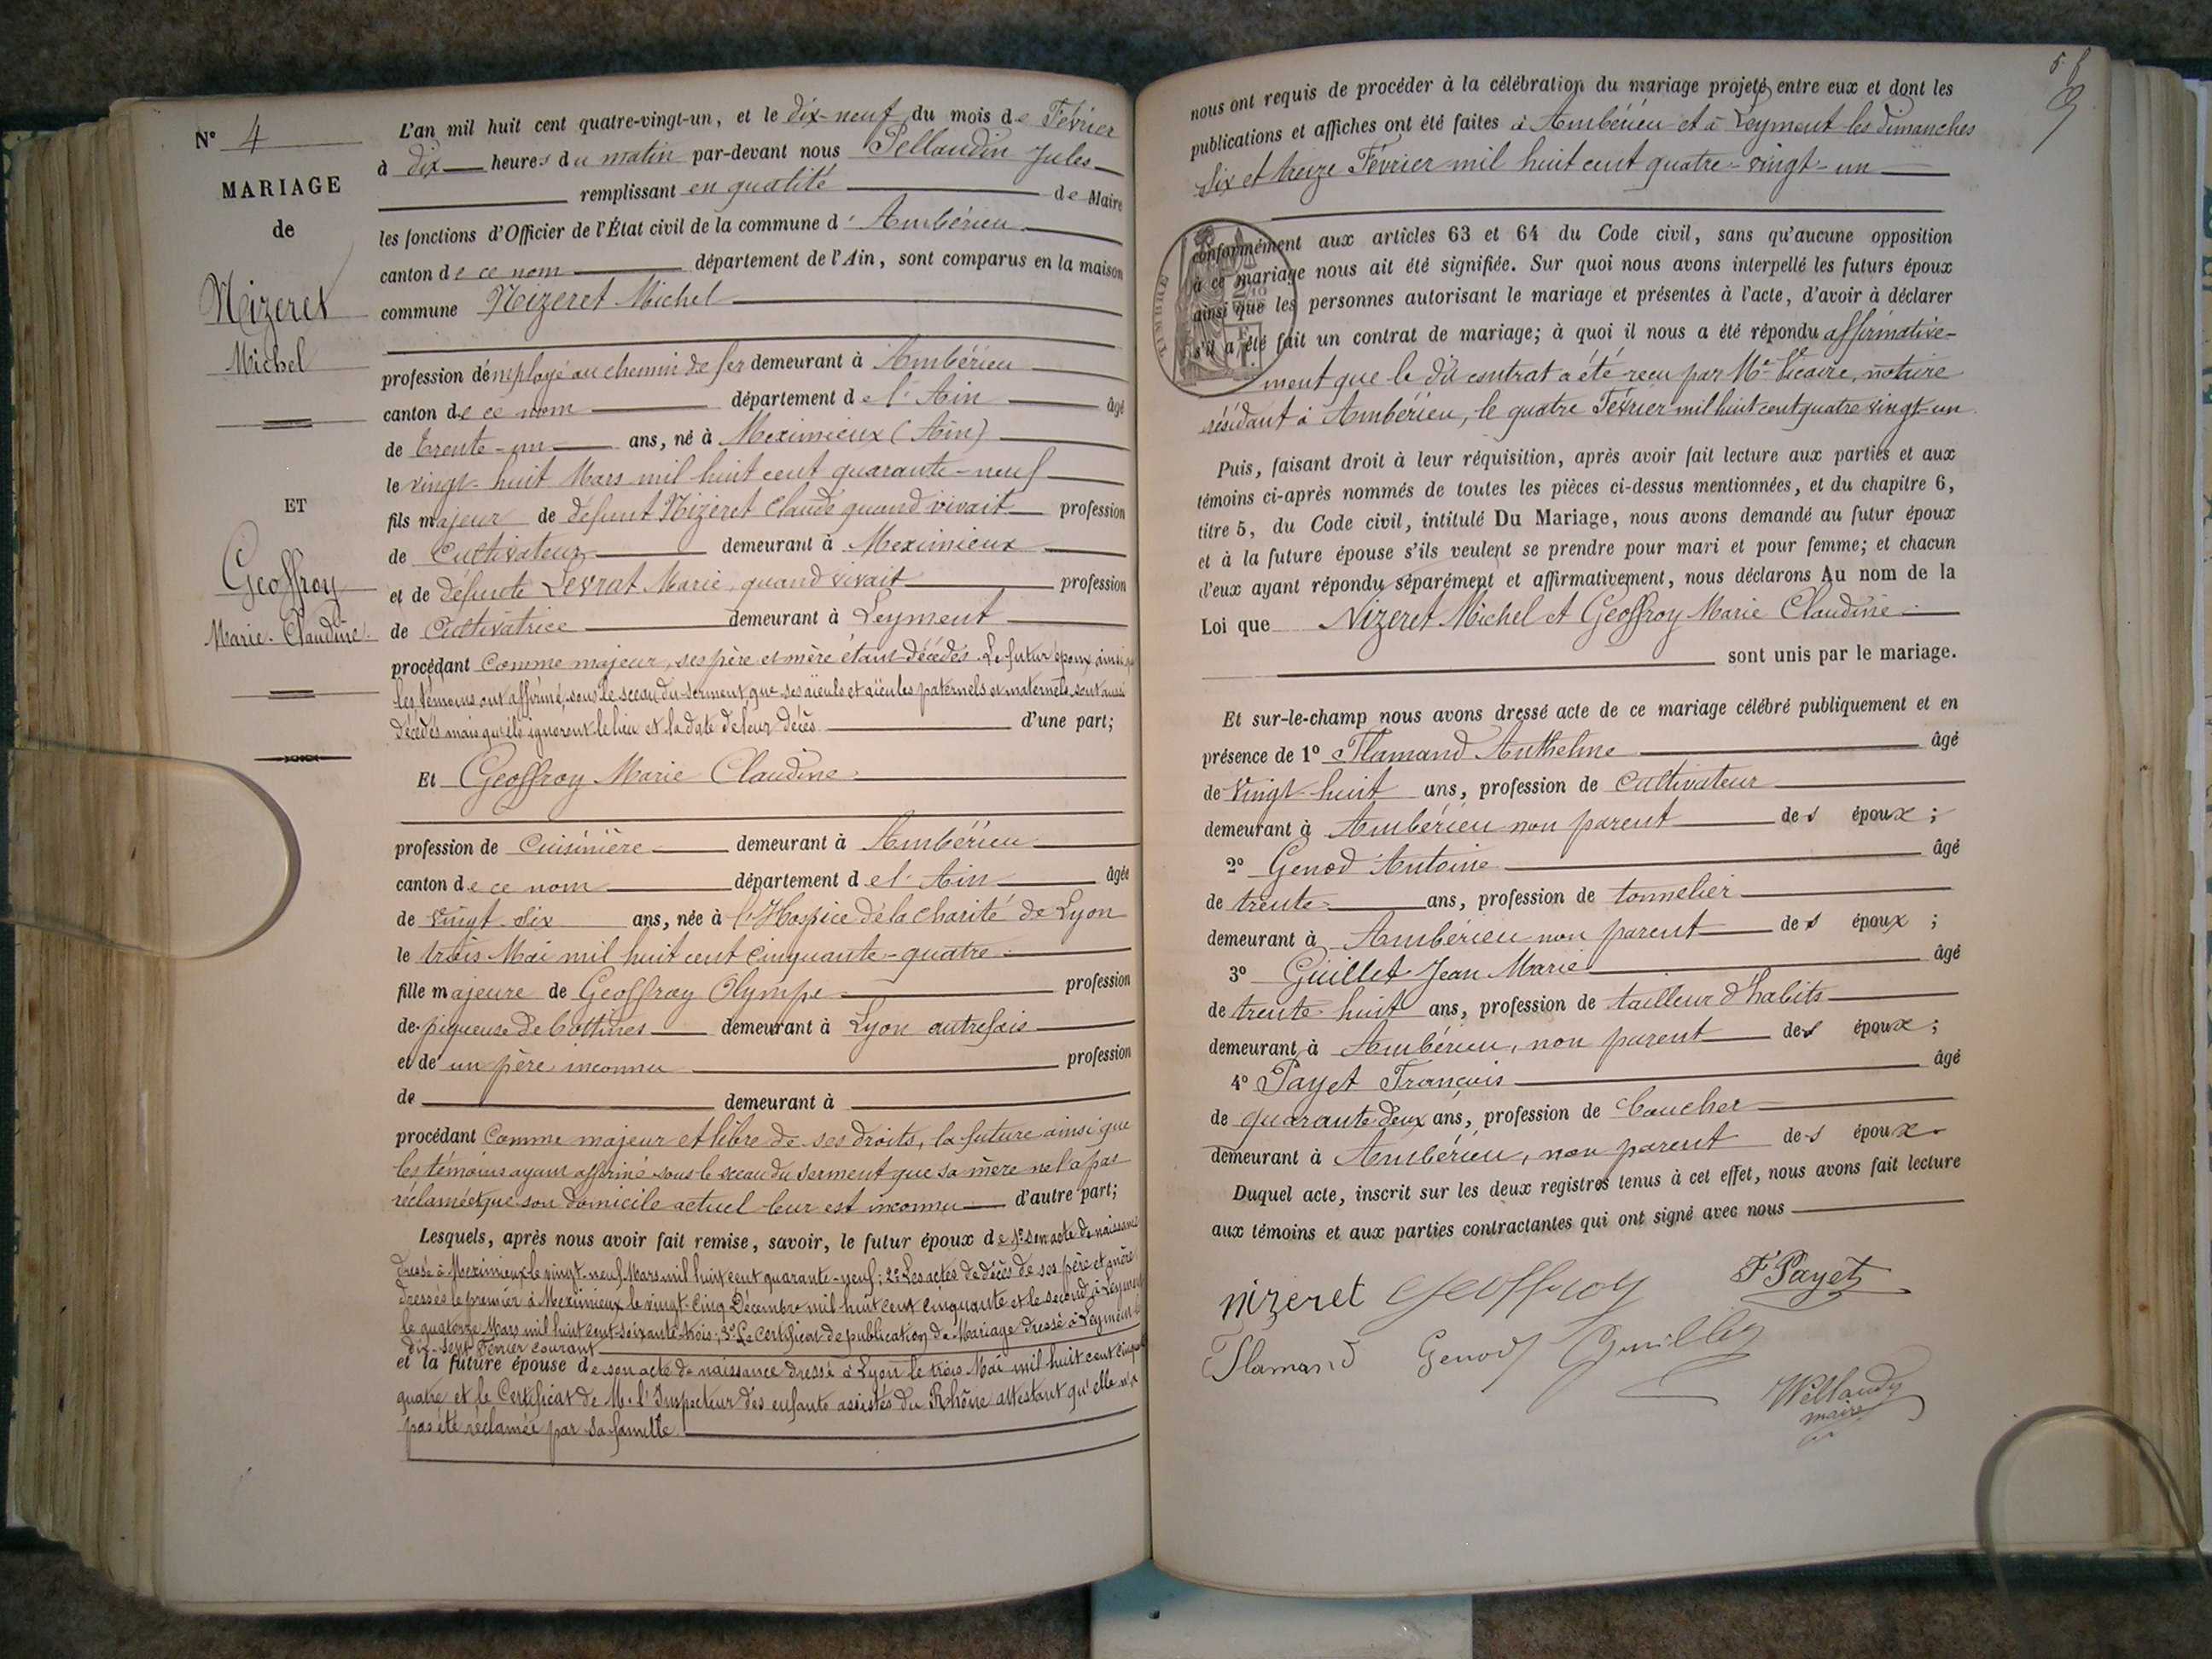 N° 4
MARIAGE
de
Nizeret
Michel
ET
Geoffroy
Marie Claudine
L'an mil huit cent quatre-vingt-un, et le dix-neuf du mois de Février
à dix heures du matin par-devant nous Pellaudin Jules
remplissant en qualité de Maire
les fonctions d'Officier de l'État civil de la commune d'Ambérieu
canton de ce nom département de l'Ain, sont comparus en la maison
commune Nizeret Michel
profession d'employé au chemin de fer demeurant à Ambérieu
canton de ce nom département de l'Ain âgé
de trente-un ans, né à Meximieux (Ain)
le vingt-huit Mars mil huit cent quarante-neuf
fils majeur de défunt Nizeret Claude quand vivait profession
de Cultivateur demeurant à Meximieux
et de défunte Levrat Marie, quand vivait profession
de Cultivatrice demeurant à Leyment
procédant comme majeur, ses père et mère étant décédés. Le futur époux ainsi que
les témoins ont affirmé, sous le sceau du serment, que ses aïeuls et aïeules paternels et maternels sont aussi
décédés mais qu'ils ignorent le lieu et la date de leur décès d'une part;
Et Geoffroy Marie Claudine
profession de Cuisinière demeurant à Ambérieu
canton de ce nom département de l'Ain âgée
de vingt-six ans, née à l'Hospice de la Charité de Lyon
le trois Mai mil huit cent cinquante-quatre
fille majeure de Geoffray Olympe profession
de piqueuse de bottines demeurant à Lyon autrefois
et de un père inconnu profession
de demeurant à
procédant comme majeur et libre de ses droits, la future ainsi que
les témoins ayant affirmé sous le sceau du serment que sa mère ne l'a pas
réclamée et que son domicile actuel leur est inconnu d'autre part;
Lesquels, après nous avoir fait remise, savoir, le futur époux de 1° son acte de naissance
dressé à Meximieux le vingt-neuf Mars mil huit cent quarante-neuf; 2° Les actes de décès de ses père et mère
dressés le premier à Meximieux le vingt-cinq Décembre mil huit cent cinquante et le second à Leyment
le quatorze Mars mil huit cent soixante-trois; 3° Le certificat de publication de Mariage dressé à Leyment le
dix-sept Février courant
et la future épouse de son acte de naissance dressé à Lyon le trois Mai mil huit cent cinquante
quatre et le Certificat de M. l'Inspecteur des enfants assistés du Rhône attestant qu'elle n'a
pas été réclamée par sa famille.
58
nous ont requis de procéder à la célébration du mariage projeté entre eux et dont les
publications et affiches ont été faites à Ambérieu et à Leyment les dimanches
six et treize Février mil huit cent quatre-vingt-un
TIMBRE
conformément aux articles 63 et 64 du Code civil, sans qu'aucune opposition
à ce mariage nous ait été signifiée. Sur quoi nous avons interpellé les futurs époux
ainsi que les personnes autorisant le mariage et présentes à l'acte, d'avoir à déclarer
s'il a été fait un contrat de mariage; à quoi il nous a été répondu affirmative-
ment que le dit contrat a été reçu par Me Vicaire, notaire
résidant à Ambérieu, le quatre Février mil huit cent quatre vingt-un
Puis, faisant droit à leur réquisition, après avoir fait lecture aux parties et aux
témoins ci-après nommés de toutes les pièces ci-dessus mentionnées, et du chapitre 6,
titre 5, du Code civil, intitulé Du Mariage, nous avons demandé au futur époux
et à la future épouse s'ils veulent se prendre pour mari et pour femme; et chacun
d'eux ayant répondu séparément et affirmativement, nous déclarons Au nom de la
Loi que Nizeret Michel et Geoffroy Marie Claudine
sont unis par le mariage.
Et sur-le-champ nous avons dressé acte de ce mariage célébré publiquement et en
présence de 1° Flamand Anthelme âgé
de vingt-huit ans, profession de cultivateur
demeurant à Ambérieu non parent des époux;
2° Genod Antoine âgé
de trente ans, profession de tonnelier
demeurant à Ambérieu non parent des époux;
3° Guillet Jean Marie âgé
de trente-huit ans, profession de tailleur d'habits
demeurant à Ambérieu, non parent des époux;
4° Payet François âgé
de quarante-deux ans, profession de boucher
demeurant à Ambérieu, non parent des époux.
Duquel acte, inscrit sur les deux registres tenus à cet effet, nous avons fait lecture
aux témoins et aux parties contractantes qui ont signé avec nous
nizeret Geoffroy F Payet
Flamand Genod Guillet
maire